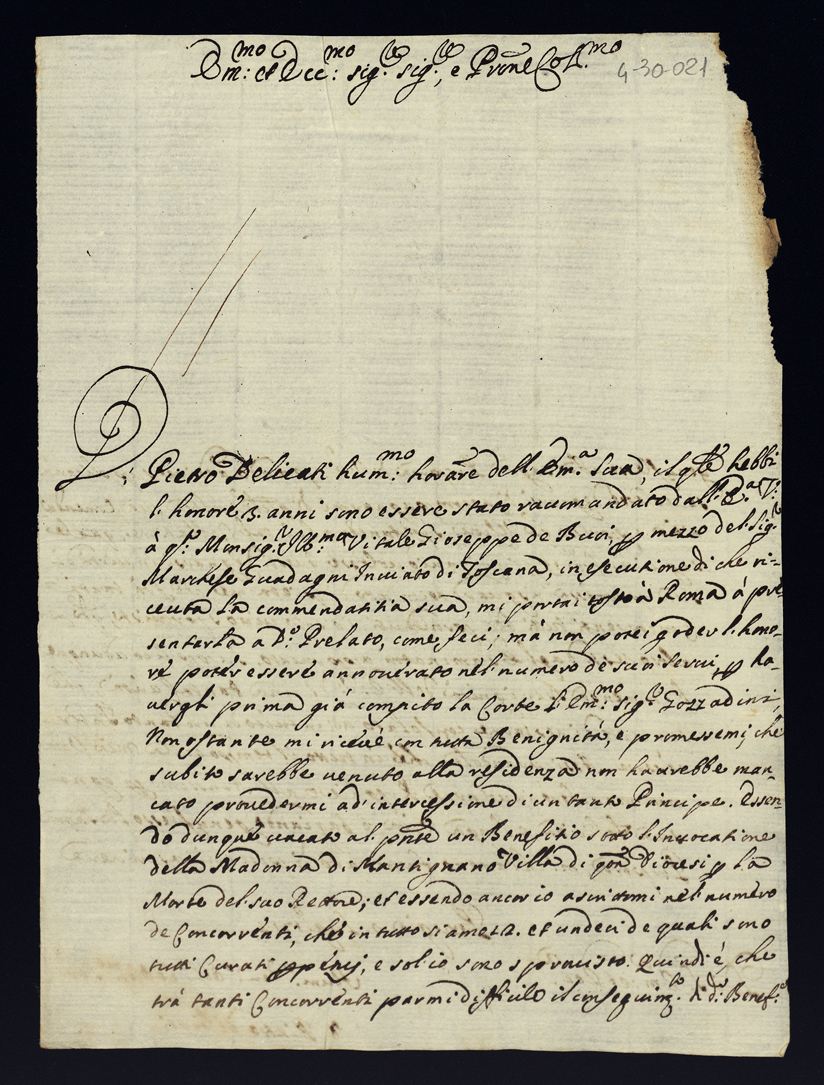 Em:mo et Ecc:mo sig:re sig:re, e Prone Coll:mo
4-30-021
Pietro Delicati hum:mo horare dell Em:a sua, il qle hebbi
l'honore 3. anni sono essere stato racomandato dall' E.a V:
à qto Monsig:r Ill:mo Vitale Gioseppe de Buoi, p mezzo del sig:r
Marchese Guadagni Inviato di Toscana, in esecutione di che ri=
ceuta la commendatitia sua, mi portai tosto à Roma à pre
sentarla a D:o Prelato, come feci; mà non potei goder l'hono=
re poter essere annoverato nel numero di suoi servi, p ha=
vergli prima già compito la Corte l'Em:mo sig:e Gozzadini,
Non ostante mi riceué con tutta Benignità, e promessemi, che
subito sarebbe venuto alla residenza non haurebbe man=
cato provedermi ad' intercessione di un tanto Principe. Essen=
do dunque vacato al pnte un Benefitio sotto l'Invocatione
della Madonna di Mantignano Villa di qta Diocesi p la
Morte del suo Rettore; et essendo ancor io ascrittomi nel numero
de Concorrenti, che in tutto siamo 12. et undeci de quali sono
tutti Curati, e sol io sono sprovisto: Quindi è, che
trà tanti Concorrenti parmi difficile il conseguim:to di d:o Benef:o